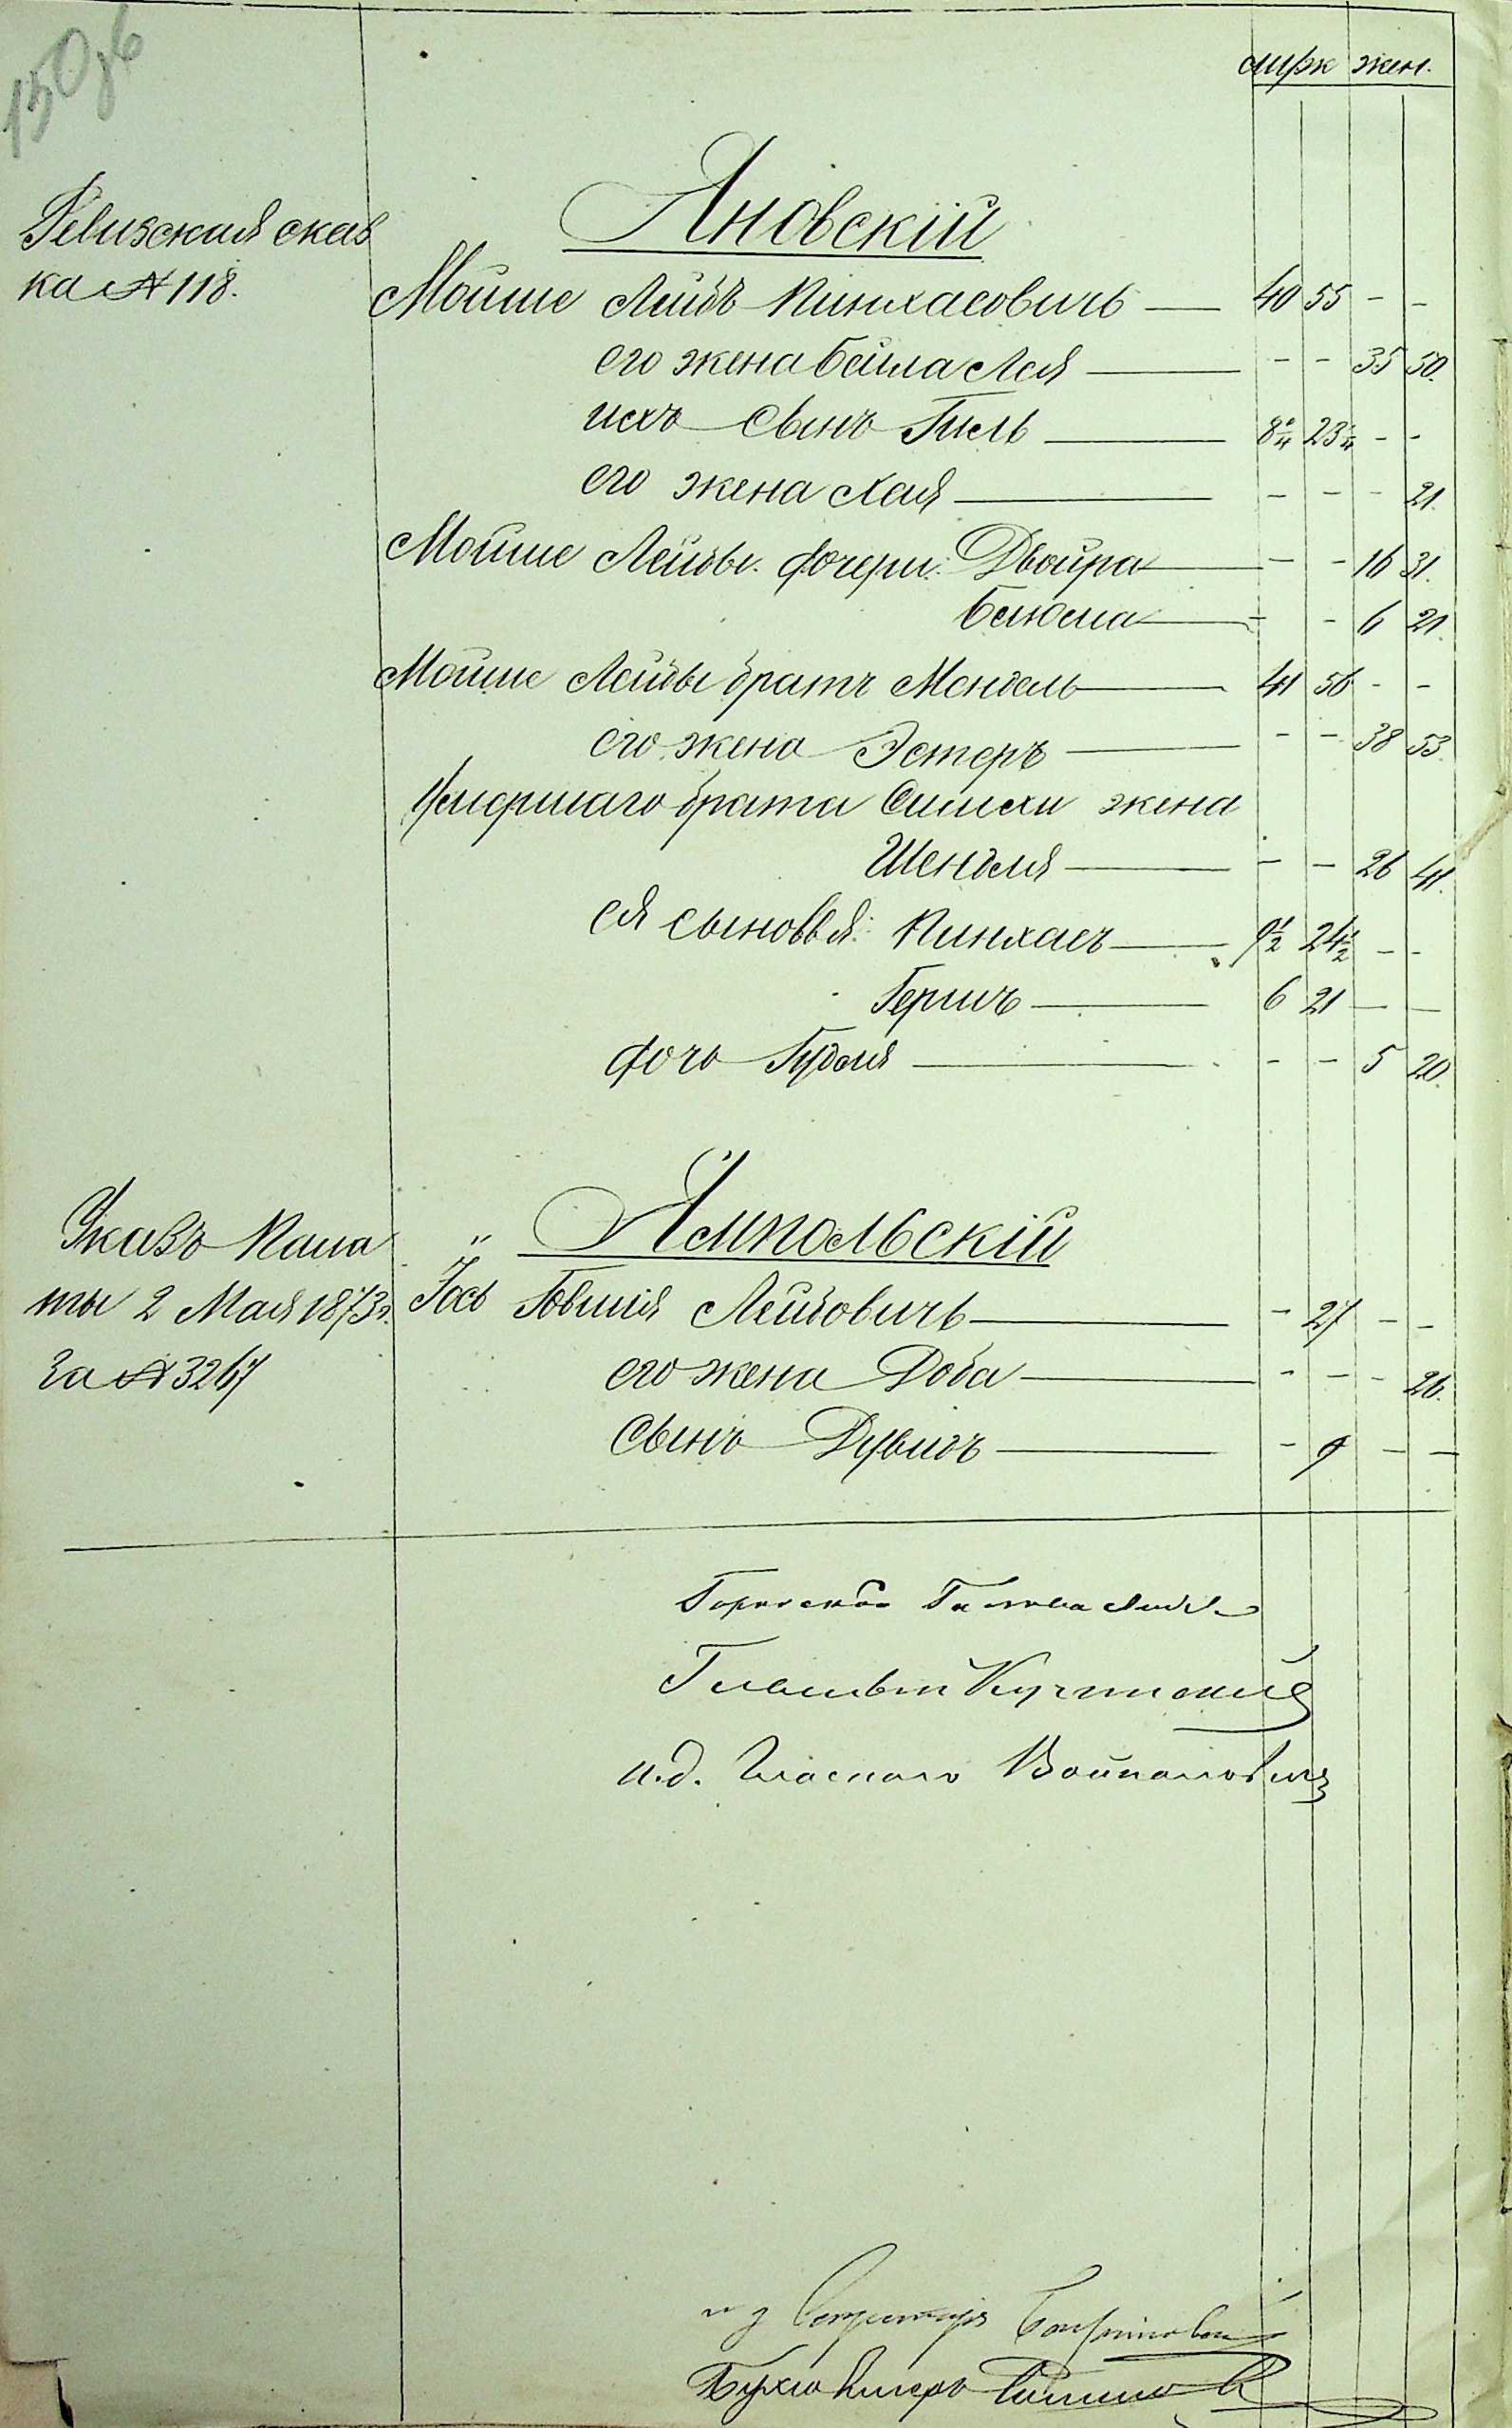 150об
муж жен.
Ревизская сказ
ка № 118.
Яновскій
Мойше Лейбъ Пинхасовичъ — 40 55 - -
его жена Бейла Лея — - - 35 50.
ихъ сынъ Гиль — 8¼ 23¼ - -
его жена Хая — - - - 21.
Мойше Лейбы дочери: Двойра — - - 16 31.
Бенюма — - - 6 21.
Мойше Лейбы братъ Мендель — 41 56 - -
его жена Эстеръ — - - 38 53.
Умершаго брата Симхи жена
Шендля — - - 26 41.
ея сыновья: Пинхасъ — 9½ 24½ - -
Гершъ — 6 21 - -
дочь Гудля — - - 5 20.
Указъ Пала
ты 2 Мая 1873 г.
за № 3267
Ямпольскій
Іось Товшія Лейбовичъ — - 27 - -
его жена Доба — - - - 26.
сынъ Дувидъ — - 9 - -
Городской Голова
Гласный Кучинскій
и.д. Гласнаго
и д Секретаря
Бухгалтеръ